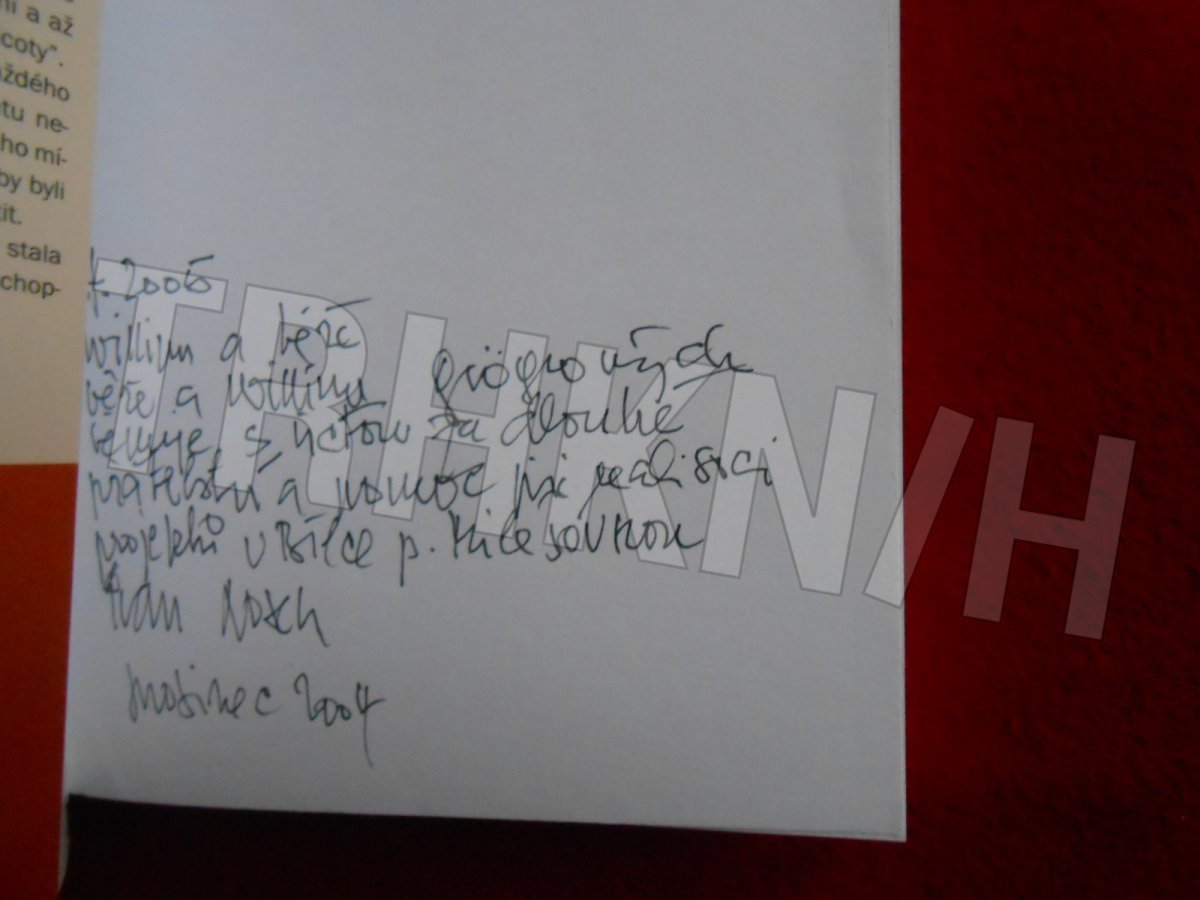 ní a až
coty".
aždého
tu ne-
ho mí-
by byli
tit.
stala
chop-
2005
william a běže
běže a william
s úctou za dlouhé
přátelství a pomoc při realisaci
projektů v Bílce p. Milešovkou
Ivan
prosinec 2004
TRHKN/H